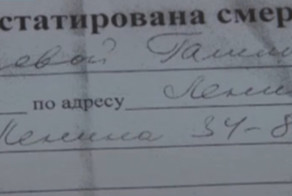 статирована смер
евой Гали
по адресу Лени
Ленина 34-8